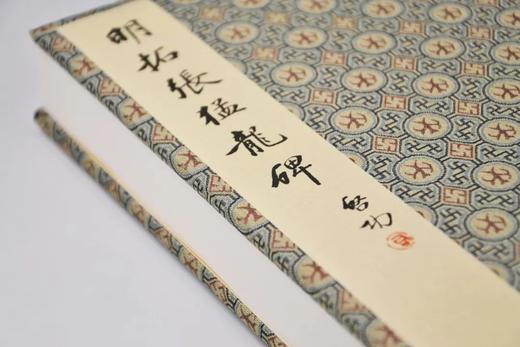 明拓張猛龍碑
啓功